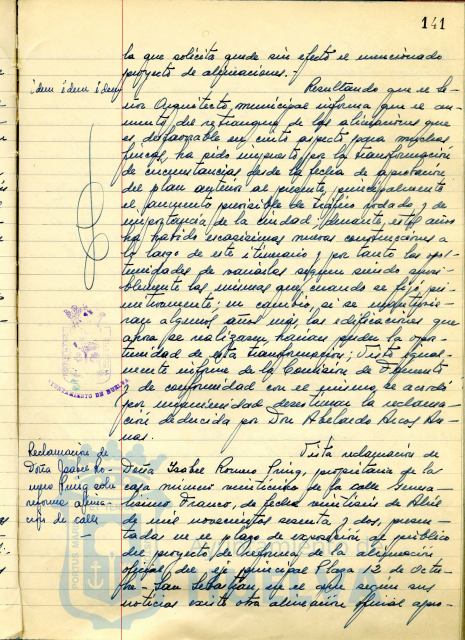 141
la que solicita quede sin efecto el mencionado
proyecto de alineaciones.
idem idem idem
Resultando que el se-
ñor Arquitecto municipal informa que el au-
mento del retranqueo de las alineaciones que
es desfavorable en cierto aspecto para muchas
fincas, ha sido impuesto por la transformación
de circunstancias desde la fecha de aprobación
del plan anterior al presente, principalmente
el aumento previsible de tráfico rodado y de
importancia de la ciudad; durante estos años
ha habido escasísimas nuevas construcciones a
lo largo de este itinerario y por tanto las opor-
tunidades de variarlas siguen siendo apresi-
blemente las mismas que cuando se fijó pri-
mitivamente; en cambio, si se
ran algunos años más, las edificaciones que
ahora se realizasen harían perder la opor-
tunidad de esta transformación; Visto igual-
mente informe de la Comisión de Fomento
y de conformidad con el mismo, se acordó
por unanimidad desestimar la reclama-
ción deducida por Don Abelardo Arcos Ar-
mas.
AYUNTAMIENTO DE
Reclamación de
Doña Isabel Ro-
mero Puig sobre
reforma alinea-
ción de calle
Vista reclamación de
Doña Isabel Romero Puig, propietaria de la
casa número veinticinco de la calle Genera-
lísimo Franco, de fecha veintiséis de Abril
de mil novecientos sesenta y dos, presen-
tada en el plazo de exposición al público
del proyecto de reforma de la alineación
oficial del eje principal Plaza 12 de Octu-
bre - San Sebastián en el que según sus
noticias existe otra alineación oficial apro-